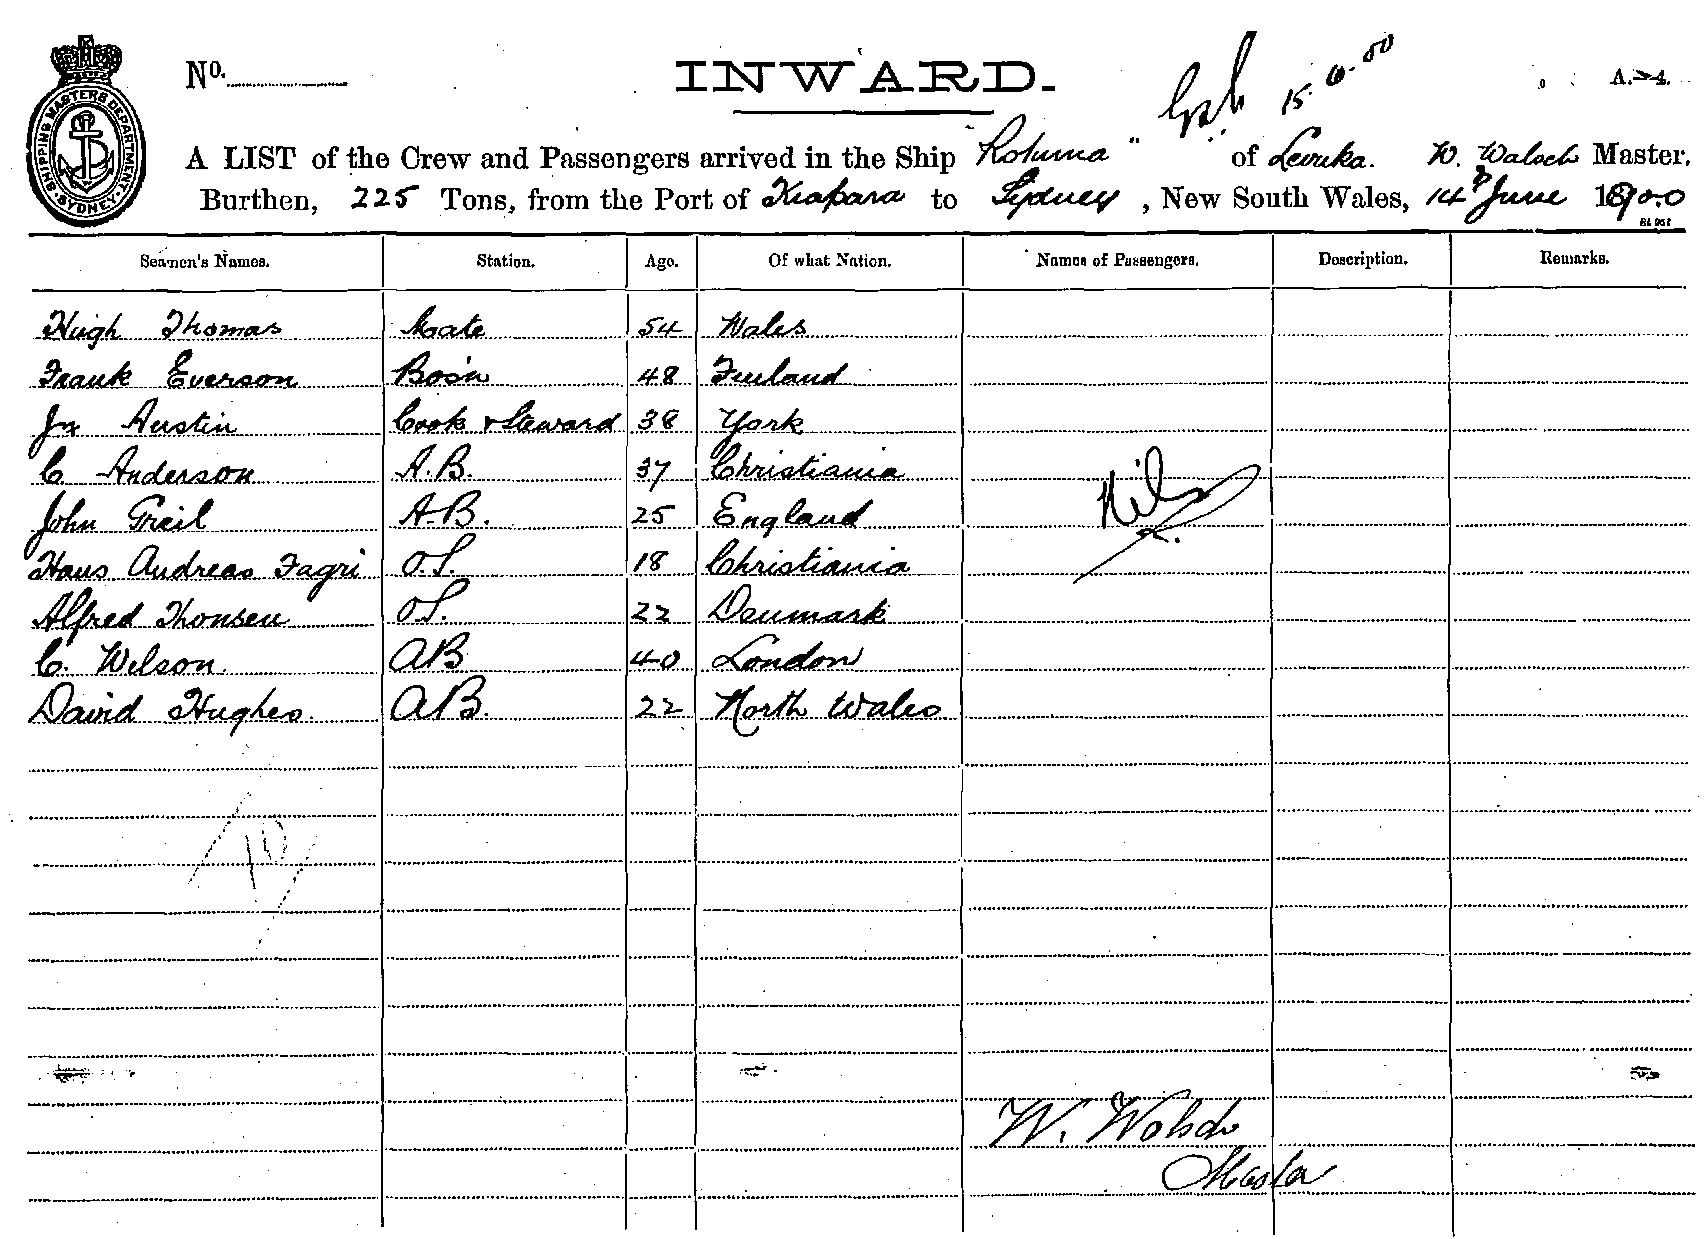 SHIPPING MASTERS DEPARTMENT
SYDNEY
No.
INWARD.
15.6.00
A.—4.
A LIST of the Crew and Passengers arrived in the Ship "Rotuma" of Levuka. W. Walsch Master.
Burthen, 225 Tons, from the Port of Kaipara to Sydney, New South Wales, 14th June 1900
Seamen's Names. Station. Age. Of what Nation. Names of Passengers. Description. Remarks.
Hugh Thomas Mate 54 Wales
Frank Everson Bosn 48 Finland
Js Austin Cook & Steward 38 York
C Anderson A.B. 37 Christiania
John Greil A.B. 25 England Nil
Hans Andreas Fagri O.S. 18 Christiania
Alfred Thonsen O.S. 22 Denmark
C. Wilson AB 40 London
David Hughes. AB. 22 North Wales
10
W. Walsch
Master